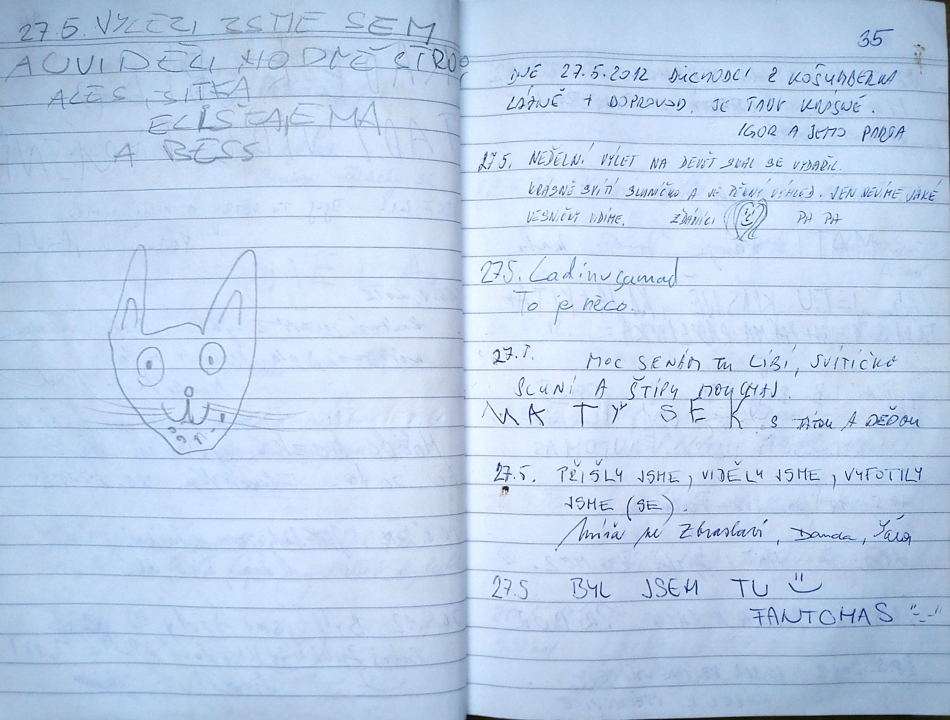 27.5. VYLEZLI JSME SEM
A UVIDĚLI HODNĚ
ALEŠ, JITKA
ELIŠKA, EMA
A BESS
35
DNE 27.5.2012 DŮCHODCI Z KOŠUMBERKA
LÁZNĚ + DOPROVOD. JE TADY KRÁSNĚ.
IGOR A JEHO PARTA
27.5. NEDĚLNÍ VÝLET NA DEVĚT SKAL SE VYDAŘIL.
KRÁSNĚ SVÍTÍ SLUNÍČKO A JE PĚKNÝ VÝHLED. JEN NEVÍME JAKÉ
VESNIČKY VIDÍME. ŽĎÁRÁCI PA PA
27.5.
To je něco.
27.5. MOC SE NÁM TU LÍBÍ, SVÍTÍČKO
SLUNÍ A ŠTÍPY MOUCHAJ
MATÝSEK S TÁTOU A DĚDOU
27.5. PŘIŠLY JSME, VIDĚLY JSME, VYFOTILY
JSME (SE).
Míša ze Zbraslavi, Danda, Sára
27.5 BYL JSEM TU
FANTOMAS